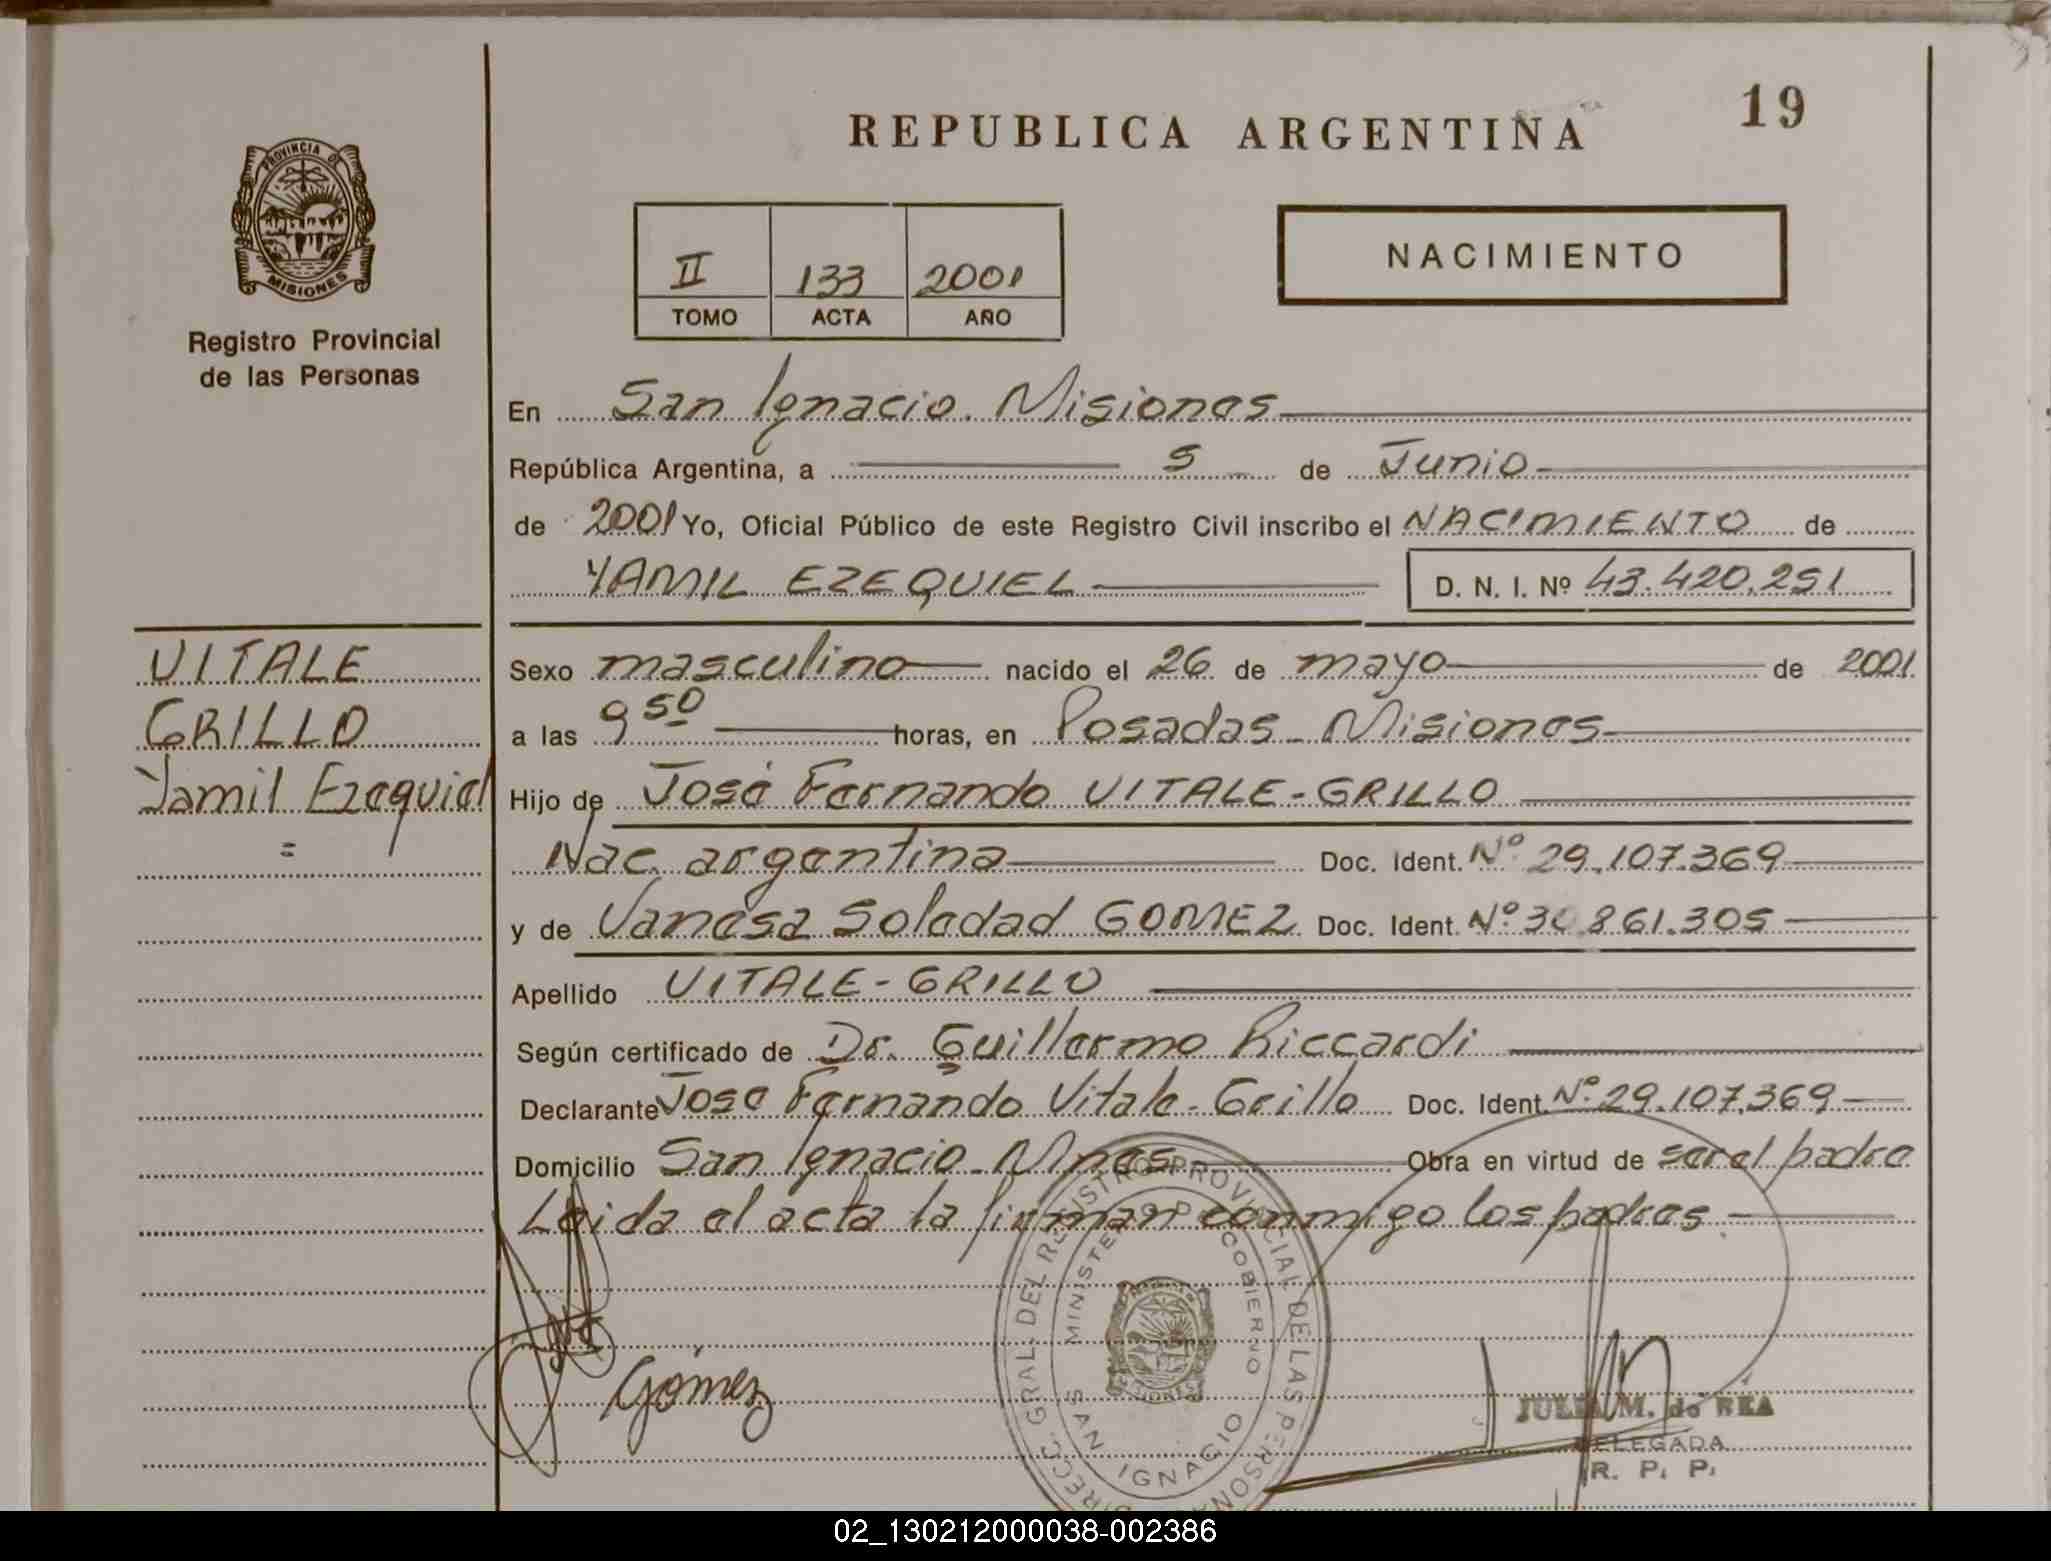 REPUBLICA ARGENTINA
19
PROVINCIA DE
MISIONES
Registro Provincial
de las Personas
NACIMIENTO
II 133 2001
TOMO ACTA AÑO
En San Ignacio. Misiones
República Argentina, a 5 de Junio
de 2001 Yo, Oficial Público de este Registro Civil inscribo el NACIMIENTO de
YAMIL EZEQUIEL D. N. I. Nº 43.420.251
VITALE
GRILLO
Yamil Ezequiel
=
Sexo masculino nacido el 26 de mayo de 2001
a las 9 50 horas, en Posadas - Misiones
Hijo de José Fernando VITALE-GRILLO
Nac. argentina Doc. Ident. Nº 29.107.369
y de Vanesa Soledad GOMEZ Doc. Ident. Nº 30.861.305
Apellido VITALE-GRILLO
Según certificado de Dr. Guillermo Riccardi
Declarante Jose Fernando Vitale-Grillo Doc. Ident. Nº 29.107.369
Domicilio San Ignacio - Mnes Obra en virtud de ser el padre
Leida el acta la firman conmigo los padres.
Gómez
DIRECC. GRAL. DEL REGISTRO PROVINCIAL DE LAS PERSONAS
GOBIERNO
SAN IGNACIO
JULIA M. de REA
DELEGADA
R. P. P.
02_130212000038-002386